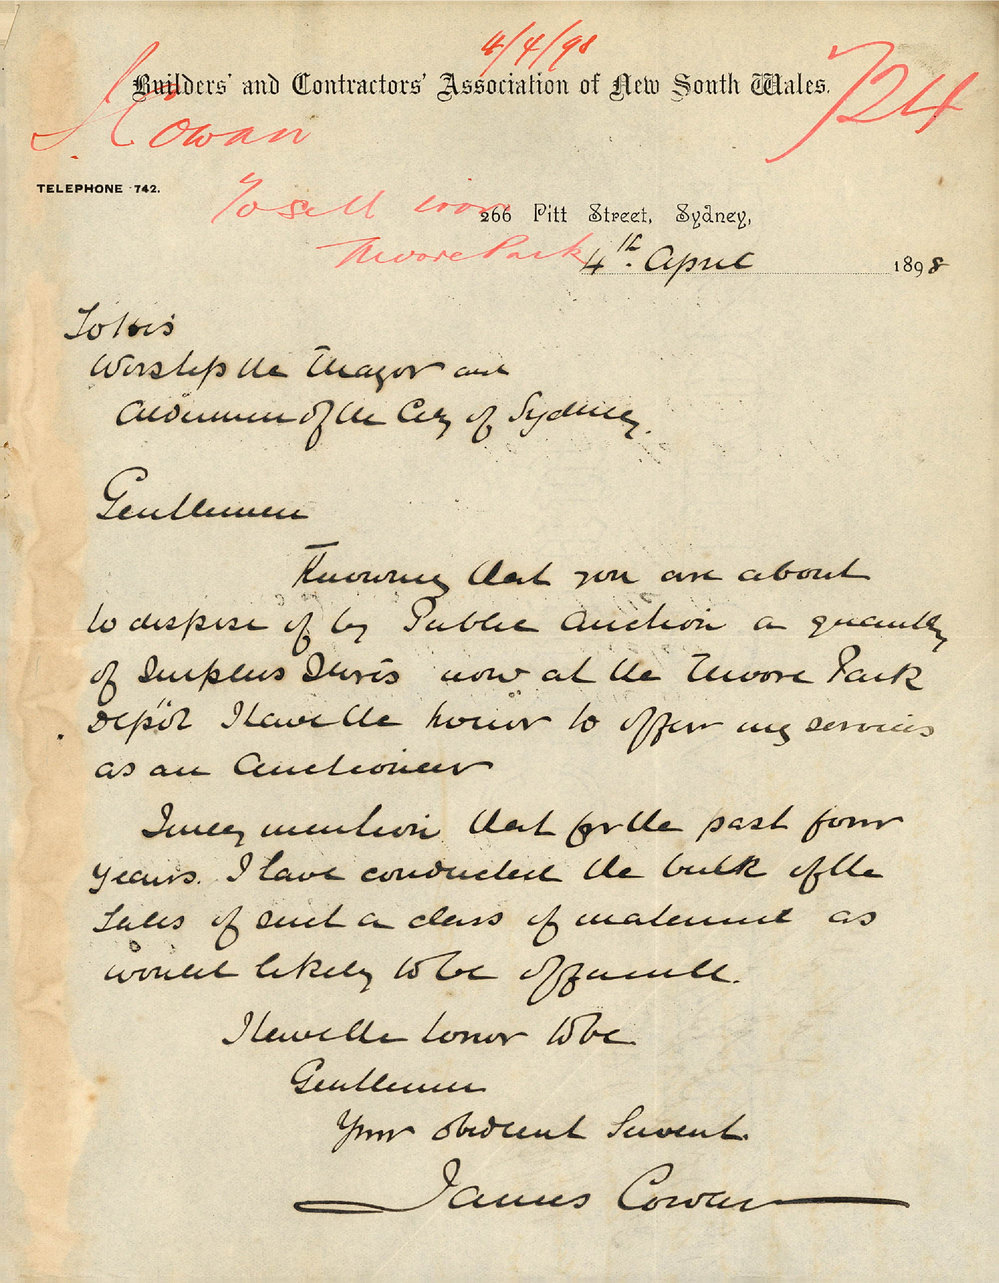 4/4/98
Builders' and Contractors' Association of New South Wales.
724
J. Cowan
TELEPHONE 742.
To sell iron
266 Pitt Street, Sydney,
Moore Park
4th. April 1898
To His
Worship the Mayor and
Aldermen of the City of Sydney.
Gentlemen
Knowing that you are about
to dispose of by Public Auction a quantity
of Surplus Stores now at the Moore Park
Depôt I have the honor to offer my services
as an Auctioneer
I may mention that for the past four
years. I have conducted the bulk of the
Sales of such a class of material as
would likely to be offered.
I have the honor to be
Gentlemen
Your obedient Servant.
James Cowan